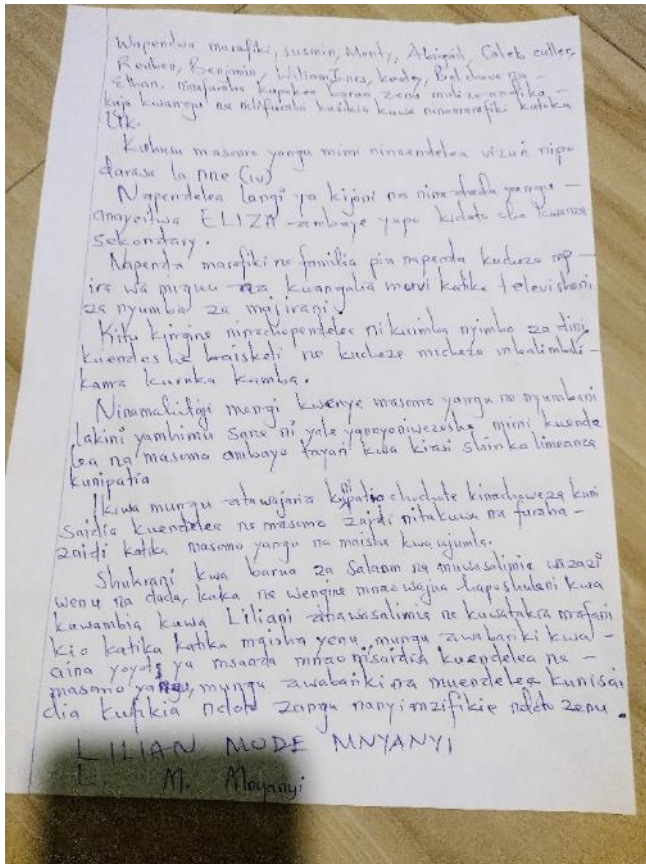 Wapendwa marafiki, susmin, Monty, Abigail, Caleb cutler,
Reuben, Benjamin, William Jnes, keely, Bel chave na -
Ethan, ninafuraha kupokea barua zenu mulizo andika,
kuja kwangu na nilifuraha kusikia kuwa ninamarafiki katika
UK.
Kuhusu masomo yangu mimi ninaendelea vizuri nipo
darasa la nne (iv)
Napendelea langi ya kijani na nina dada yangu -
anayeitwa ELIZA ambaye yupo kidato cha kwanza
sekondary.
Napenda marafiki na familia pia napenda kucheza mp -
ira wa miguu na kuangalia muvi katika televisheni
za nyumba za majirani.
Kitu kingine ninachopendelea ni kuimba nyimbo za dini,
kuendesha baiskeli na kucheza michezo mbalimbali -
kama kuruka kamba.
Ninamahitaji mengi kwenye masomo yangu na nyumbani
lakini yamhimu sana ni yale yanayoniwezesha mimi kuende
lea na masomo ambayo tayari kwa kiasi shirika limeanza
kunipatia
Ikiwa mungu atawajaria kunipatia chochote kinachoweza kuni
saidia kuendelea na masomo zaidi nitakuwa na furaha -
zaidi katika masomo yangu na maisha kwa ujumla.
Shukrani kwa barua za salaam na muwasalimie wazazi
wenu na dada, kaka na wengine mnao wajua hapo shuleni kwa
kuwambia kuwa Liliani anawasalimia na kuwatakia mafani
kio katika katika maisha yenu, mungu awabariki kwa -
aina yoyote ya msaada mnao nisaidia kuendelea na -
masomo yangu, mungu awabariki na muendelea kunisai
dia kufikia ndoto zangu nanyi mzifikie ndoto zenu.
LILIAN MODE MNYANYI
L. M. Mnyanyi